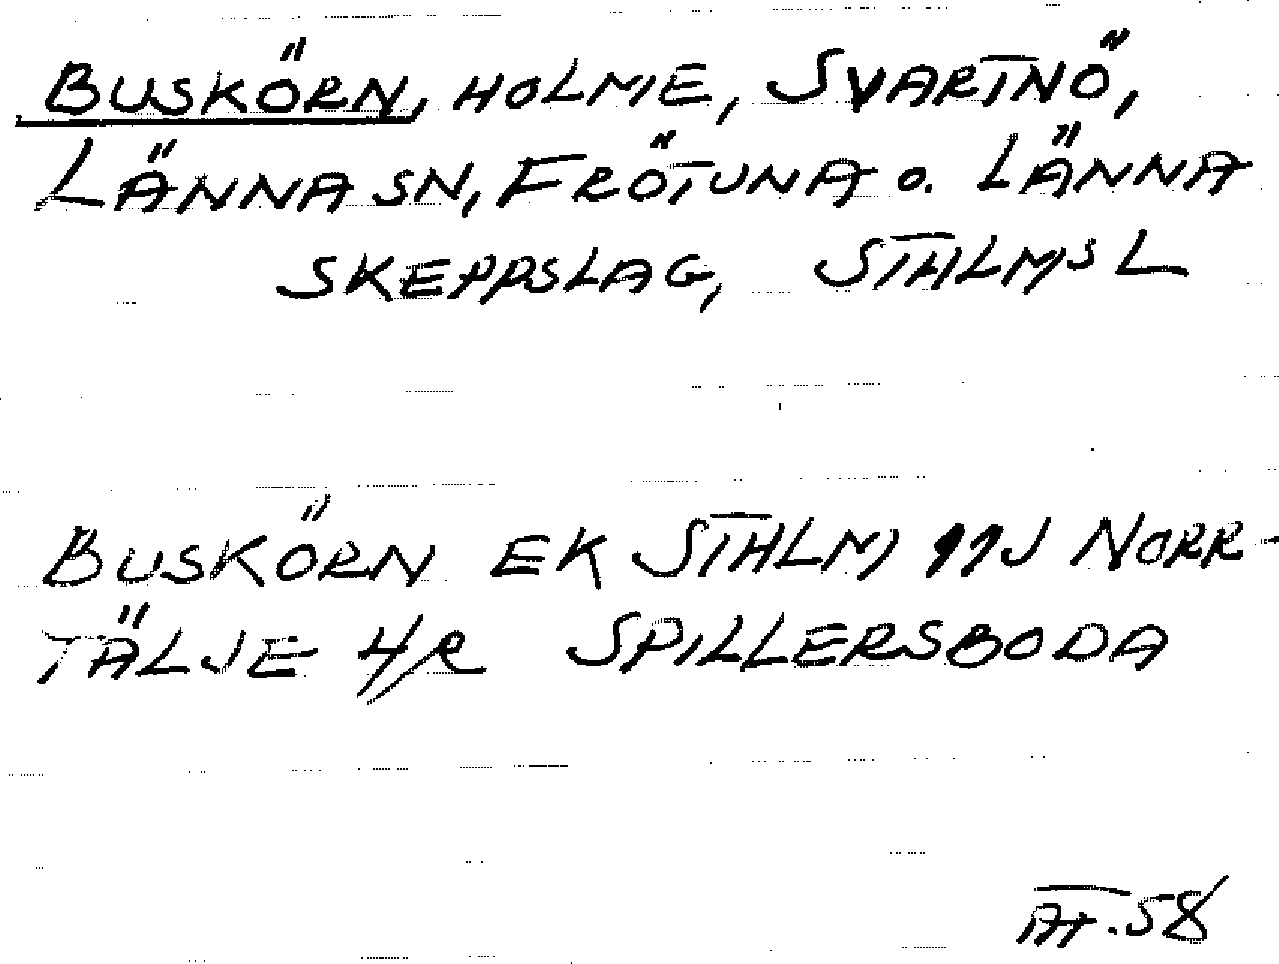 BUSKÖRN, HOLME, SVARTNÖ,
LÄNNA SN, FRÖTUNA o. LÄNNA
SKEPPSLAG, STHLMS L
BUSKÖRN EK STHLM 11J NORR-
TÄLJE 4/R SPILLERSBODA
AT. 58